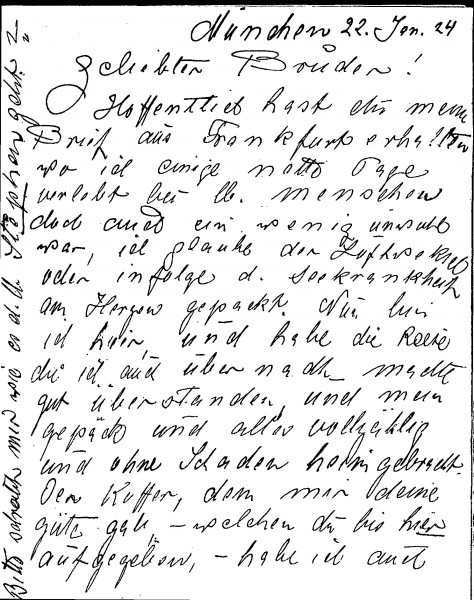 München 22. Jan. 24
Geliebter Bruder!
Hoffentlich hast du meinen
Brief aus Frankfurt erhalten
wo ich einige nette Tage
verlebt bei lb. Menschen
doch auch ein wenig unwohl
war, ich glaube der Luftwechsel
oder infolge d. Seekrankheit
am Herzen gepackt. Nun bin
ich hier, und habe die Reise
die ich auch über nacht machte
gut überstanden, und mein
gepäck und alles vollzählig
und ohne Schaden heimgebracht.
Den Koffer, dem mir deine
güte gab – welchen du bis hier
aufgegeben, – habe ich auch
Bitte schreibe mir wie es d. lb. Stephan geht?